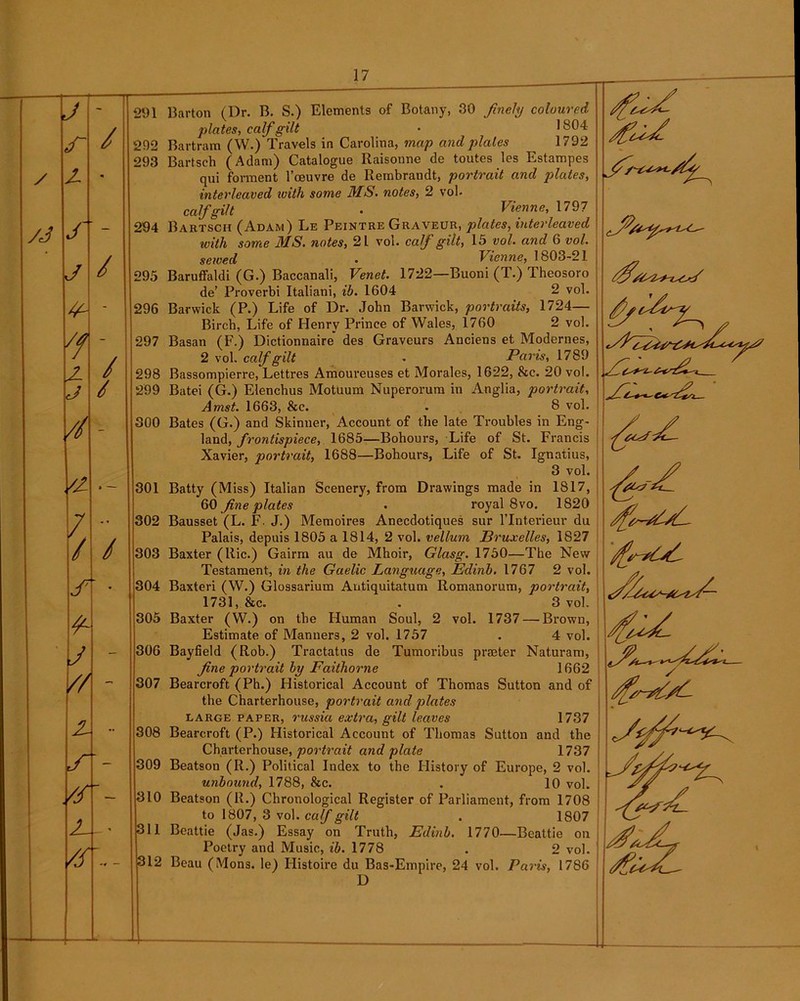 17
291 Barton (Dr. B. S.) Elements of Botany, 30 finely coloured
plates, calf gilt . 1804
292 Bartram (W.) Travels in Carolina, map and plates 1792
293 Bartsch (Adam) Catalogue Raisonne de toutes les Estampes
qui forment l'œuvre de Rembrandt, portrait and plates,
interleaved with some MS. notes, 2 vol.
calf gilt . Vienne, 1797
294 Bartsch (Adam) Le Peintre Graveur, plates, interleaved
with some MS. notes, 21 vol. calf gilt, 15 vol. and 6 vol.
sewed . Vienne, 1803-21
295 Baruffaldi (G.) Baccanali, Venet. 1722—Buoni (T.) Theosoro
de' Proverbi Italiani, ib. 1604 2 vol.
296 Barwick (P.) Life of Dr. John Barwick, portraits, 1724—
Birch, Life of Henry Prince of Wales, 1760 2 vol.
297 Basan (F.) Dictionnaire des Graveurs Anciens et Modernes,
2 vol. calf gilt . Paris, 1789
298 Bassompierre, Lettres Amoureuses et Morales, 1622, &c. 20 vol.
299 Batei (G.) Elenchus Motuum Nuperorum in Anglia, portrait,
Amst. 1663, &c. . 8 vol.
300 Bates (G.) and Skinner, Account of the late Troubles in Eng-
land, frontispiece, 1685—Bohours, Life of St. Francis
Xavier, portrait, 1688—Bohours, Life of St. Ignatius,
3 vol.
301 Batty (Miss) Italian Scenery, from Drawings made in 1817,
60 fine plates . royal 8vo. 1820
302 Bausset (L. F. J.) Memoires Anecdotiques sur l'Interieur du
Palais, depuis 1805 a 1814, 2 vol. vellum Bruxelles, 1827
303 Baxter (Ric.) Gairm au de Mhoir, Glasg. 1750—The New
Testament, in the Gaelic Language, Edinb. 1767 2 vol.
304 Baxteri (W.) Glossarium Antiquitatum Romanorum, portrait,
1731, &c. . 3 vol.
305 Baxter (W.) on the Human Soul, 2 vol. 1737—Brown,
Estimate of Manners, 2 vol. 1757 . 4 vol.
306 Bayfield (Rob.) Tractatus de Tumoribus præter Naturam,
fine portrait by Faithorne 1662
307 Bearcroft (Ph.) Historical Account of Thomas Sutton and of
the Charterhouse, portrait and plates
LARGE PAPER, russia extra, gilt leaves 1737
308 Bearcroft (P.) Historical Account of Thomas Sutton and the
Charterhouse, portrait and plate 1737
309 Beatson (R.) Political Index to the History of Europe, 2 vol.
unbound, 1788, &c. . 10 vol.
310 Beatson (R.) Chronological Register of Parliament, from 1708
to 1807, 3 vol. calf gilt . 1807
311 Beattie (Jas.) Essay on Truth, Edinb. 1770—Beattie on
Poetry and Music, ib. 1778 . 2 vol.
312 Beau (Mons. le) Histoire du Bas-Empire, 24 vol. Paris, 1786
D